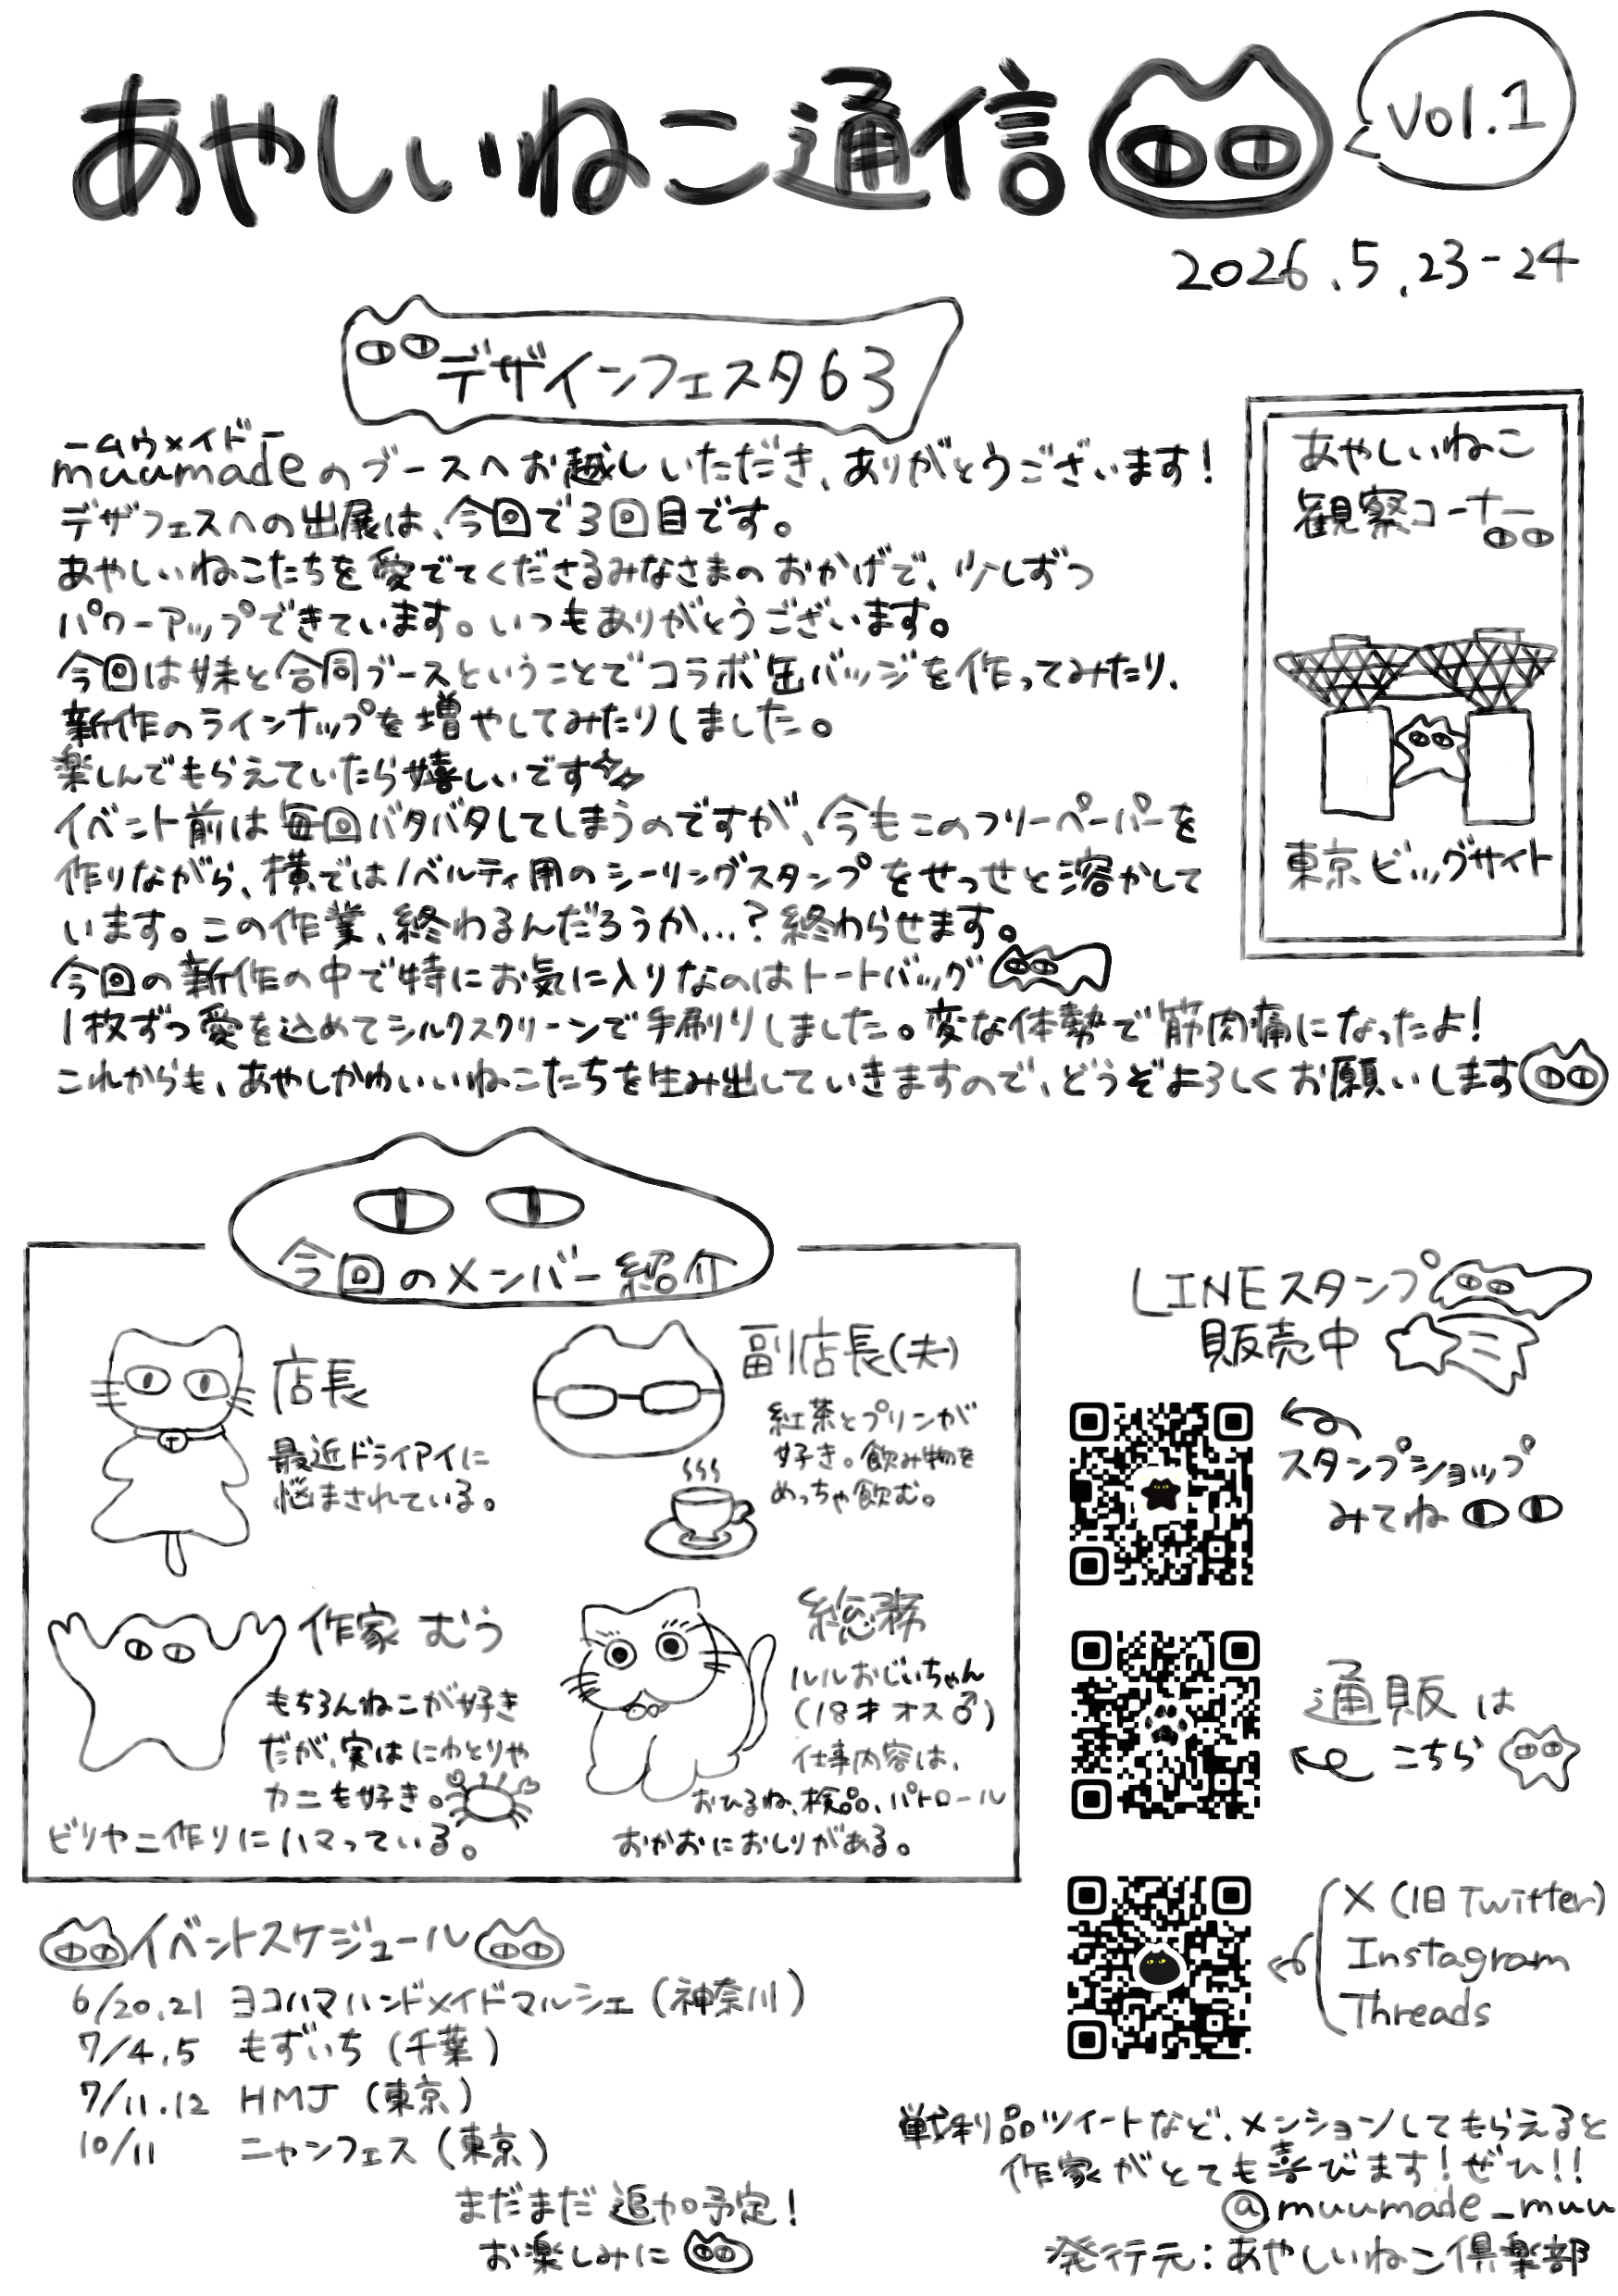 あやしいねこ通信
vol.1
2026.5.23-24
デザインフェスタ63
-ムウメイド-
muumadeのブースへお越しいただき、ありがとうございます!
デザフェスへの出展は、今回で3回目です。
あやしいねこたちを愛でてくださるみなさまのおかげで、少しずつ
パワーアップできています。いつもありがとうございます。
今回は妹と合同ブースということでコラボ缶バッジを作ってみたり、
新作のラインナップを増やしてみたりしました。
楽しんでもらえていたら嬉しいです
イベント前は毎回バタバタしてしまうのですが、今もこのフリーペーパーを
作りながら、横ではノベルティ用のシーリングスタンプをせっせと溶かして
います。この作業、終わるんだろうか...?終わらせます。
今回の新作の中で特にお気に入りなのはトートバッグ
1枚ずつ愛を込めてシルクスクリーンで手刷りしました。変な体勢で筋肉痛になったよ!
これからも、あやしかわいいねこたちを生み出していきますので、どうぞよろしくお願いします
あやしいねこ
観察コーナー
東京ビッグサイト
今回のメンバー紹介
店長
最近ドライアイに
悩まされている。
副店長(夫)
紅茶とプリンが
好き。飲み物を
めっちゃ飲む。
作家 むう
もちろんねこが好き
だが、実はにわとりや
カニも好き。
ビリヤニ作りにハマっている。
総務
ルルおじいちゃん
(18才オス♂)
仕事内容は、
おひるね、検品、パトロール
おかおにおしりがある。
LINEスタンプ
販売中
スタンプショップ
みてね
通販は
こちら
X (旧Twitter)
Instagram
Threads
イベントスケジュール
6/20.21 ヨコハマハンドメイドマルシェ(神奈川)
7/4.5 もずいち(千葉)
7/11.12 HMJ(東京)
10/11 ニャンフェス(東京)
まだまだ追加予定!
お楽しみに
戦利品ツイートなど、メンションしてもらえると
作家がとても喜びます!ぜひ!!
@muumade_muu
発行元:あやしいねこ倶楽部